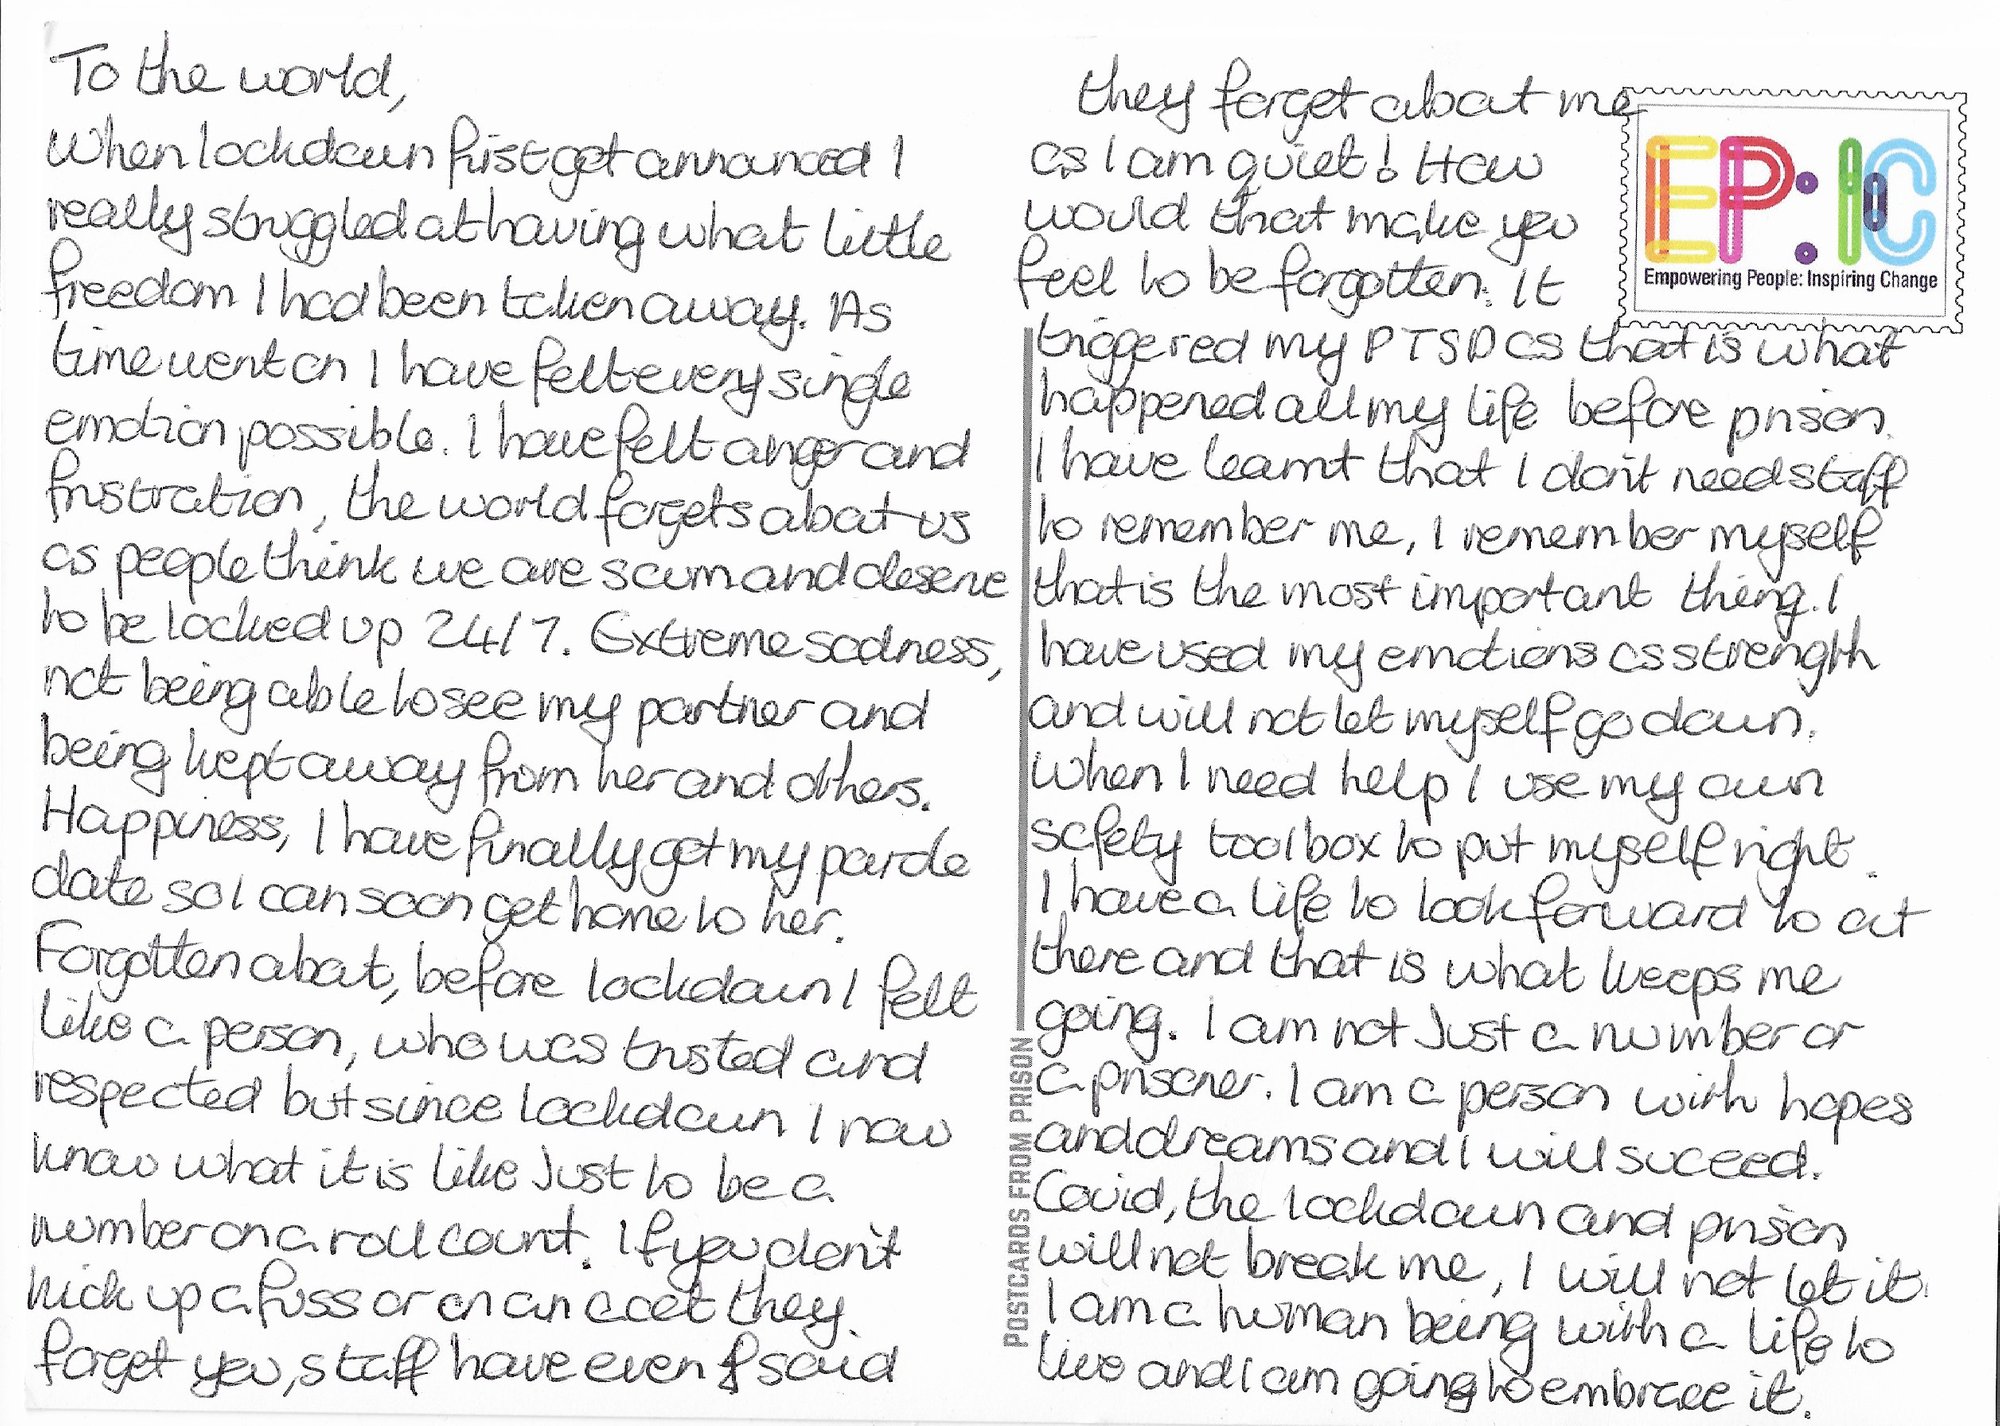 To the world,
When lockdown first got announced I
really struggled at having what little
freedom I had been taken away. As
time went on I have felt every single
emotion possible. I have felt anger and
frustration, the world forgets about us
as people think we are scum and deserve
to be locked up 24/7. Extreme sadness,
not being able to see my partner and
being kept away from her and others.
Happiness, I have finally got my parole
date so I can soon get home to her.
Forgotten about, before lockdown I felt
like a person, who was trusted and
respected but since lockdown I now
know what it is like Just to be a
number on a roll count. If you don't
kick up a fuss or on an acct they
forget you, staff have even said
they forget about me
as I am quiet! How
would that make you
feel to be forgotten. It
triggered my PTSD as that is what
happened all my life before prison.
I have learnt that I don't need staff
to remember me, I remember myself
that is the most important thing. I
have used my emotions as strength
and will not let myself go down.
When I need help I use my own
safety toolbox to put myself right.
I have a life to look forward to out
there and that is what keeps me
going. I am not Just a number or
a prisoner. I am a person with hopes
and dreams and I will suceed.
Covid, the lockdown and prison
will not break me, I will not let it.
I am a human being with a life to
live and I am going to embrace it.
EP:IC
Empowering People: Inspiring Change
POSTCARDS FROM PRISON